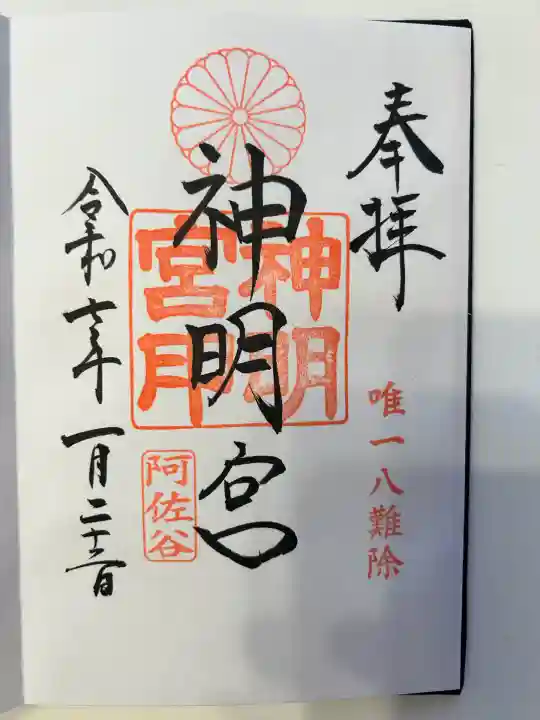 奉拝
唯一八難除
神明宮
神明
宮印
阿佐谷
令和七年一月二十日